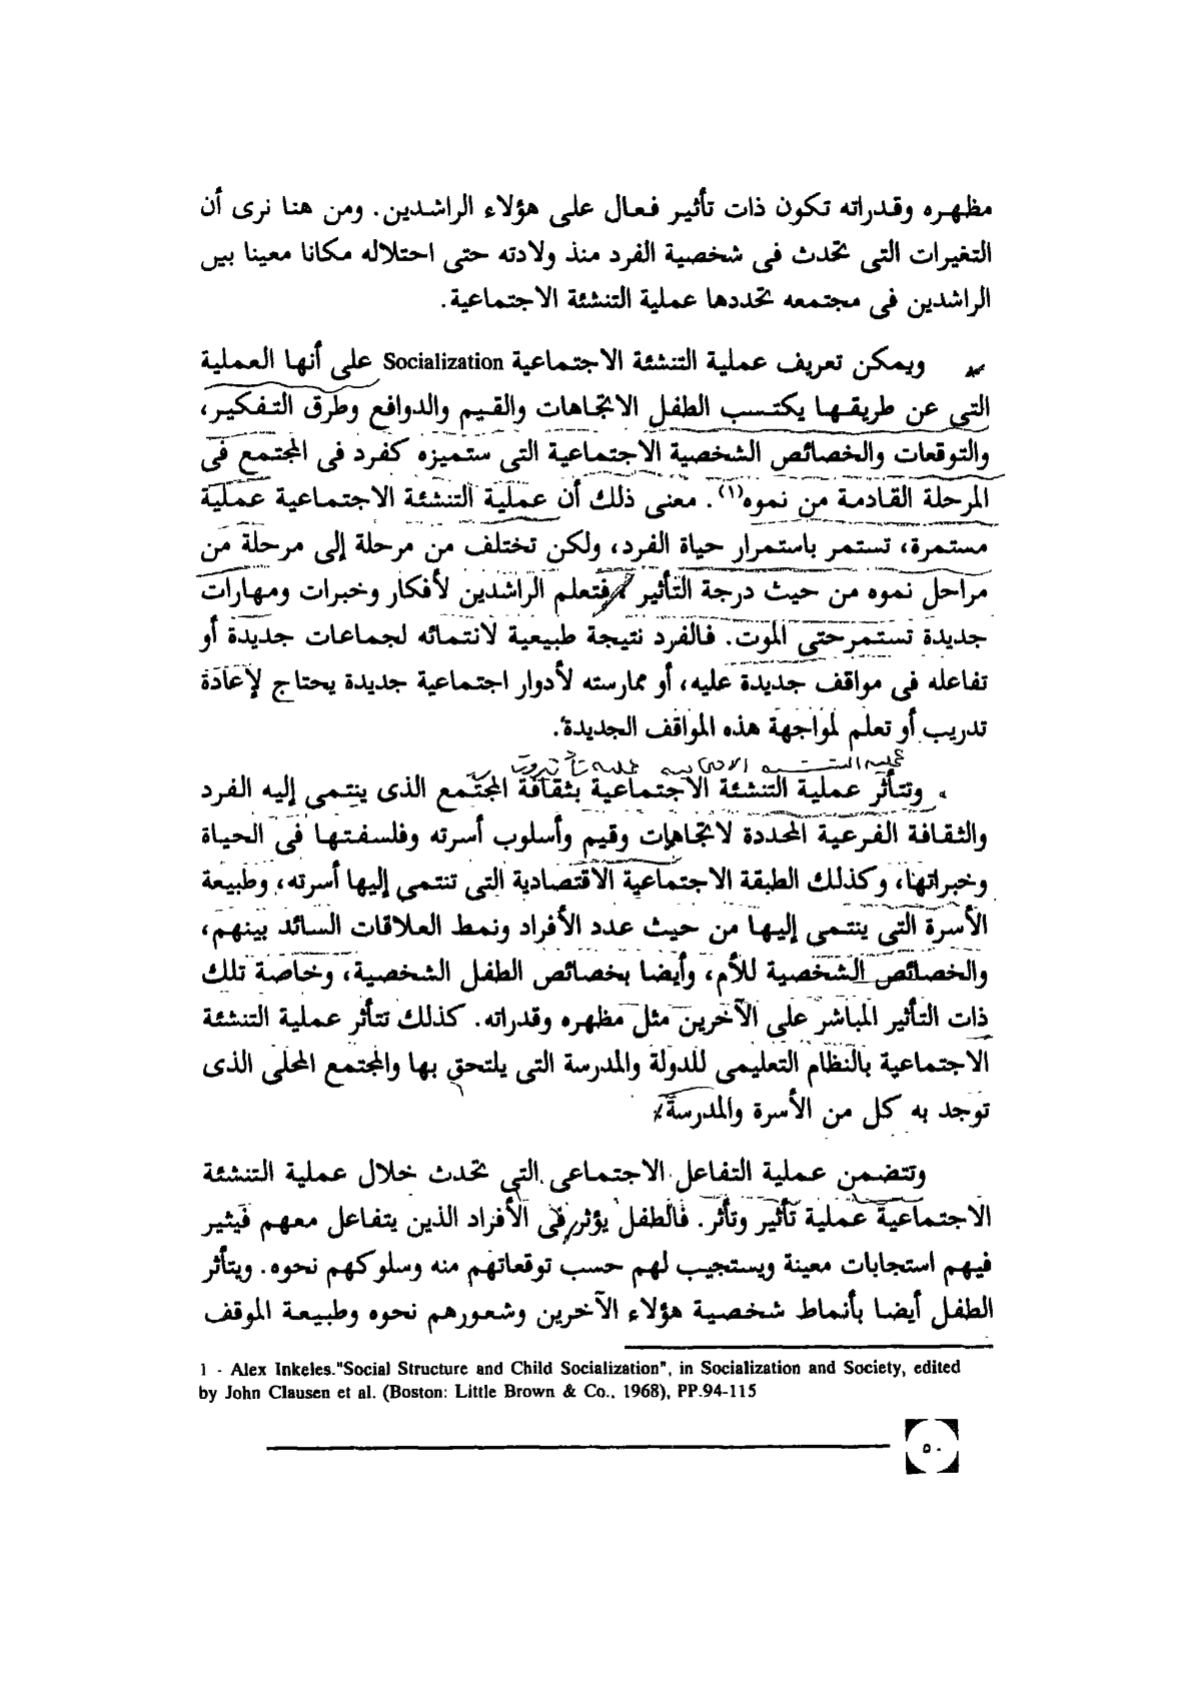 مظهره وقدراته تكون ذات تأثير فعال على هؤلاء الراشدين. ومن هنا نرى أن
التغيرات التى تحدث فى شخصية الفرد منذ ولادته حتى احتلاله مكانا معينا بين
الراشدين فى مجتمعه تحددها عملية التنشئة الاجتماعية.
ويمكن تعريف عملية التنشئة الاجتماعية Socialization على أنها العملية
التى عن طريقها يكتسب الطفل الاتجاهات والقيم والدوافع وطرق التفكير،
والتوقعات والخصائص الشخصية الاجتماعية التى ستميزه كفرد فى المجتمع فى
المرحلة القادمة من نموه(١). معنى ذلك أن عملية التنشئة الاجتماعية عملية
مستمرة، تستمر باستمرار حياة الفرد، ولكن تختلف من مرحلة إلى مرحلة من
مراحل نموه من حيث درجة التأثير، فتعلم الراشدين لأفكار وخبرات ومهارات
جديدة تستمرحتى الموت. فالفرد نتيجة طبيعية لانتمائه لجماعات جديدة أو
تفاعله فى مواقف جديدة عليه، أو ممارسته لأدوار اجتماعية جديدة يحتاج لإعادة
تدريب أو تعلم لمواجهة هذه المواقف الجديدة.
وتتأثر عملية التنشئة الاجتماعية بثقافة المجتمع الذى ينتمى إليه الفرد
والثقافة الفرعية المحددة لاتجاهات وقيم وأسلوب أسرته وفلسفتها فى الحياة
وخبراتها، وكذلك الطبقة الاجتماعية الاقتصادية التى تنتمى إليها أسرته، وطبيعة
الأسرة التى ينتمى إليها من حيث عدد الأفراد ونمط العلاقات السائد بينهم،
والخصائص الشخصية للأم، وأيضا بخصائص الطفل الشخصية، وخاصة تلك
ذات التأثير المباشر على الآخرين مثل مظهره وقدراته. كذلك تتأثر عملية التنشئة
الاجتماعية بالنظام التعليمى للدولة والمدرسة التى يلتحق بها والمجتمع المحلى الذى
توجد به كل من الأسرة والمدرسة.
وتتضمن عملية التفاعل الاجتماعى التى تحدث خلال عملية التنشئة
الاجتماعية عملية تأثير وتأثر. فالطفل يؤثر فى الأفراد الذين يتفاعل معهم فيثير
فيهم استجابات معينة ويستجيب لهم حسب توقعاتهم منه وسلوكهم نحوه. ويتأثر
الطفل أيضا بأنماط شخصية هؤلاء الآخرين وشعورهم نحوه وطبيعة الموقف
1 - Alex Inkeles."Social Structure and Child Socialization", in Socialization and Society, edited
by John Clausen et al. (Boston: Little Brown & Co., 1968), PP.94-115
٥٠